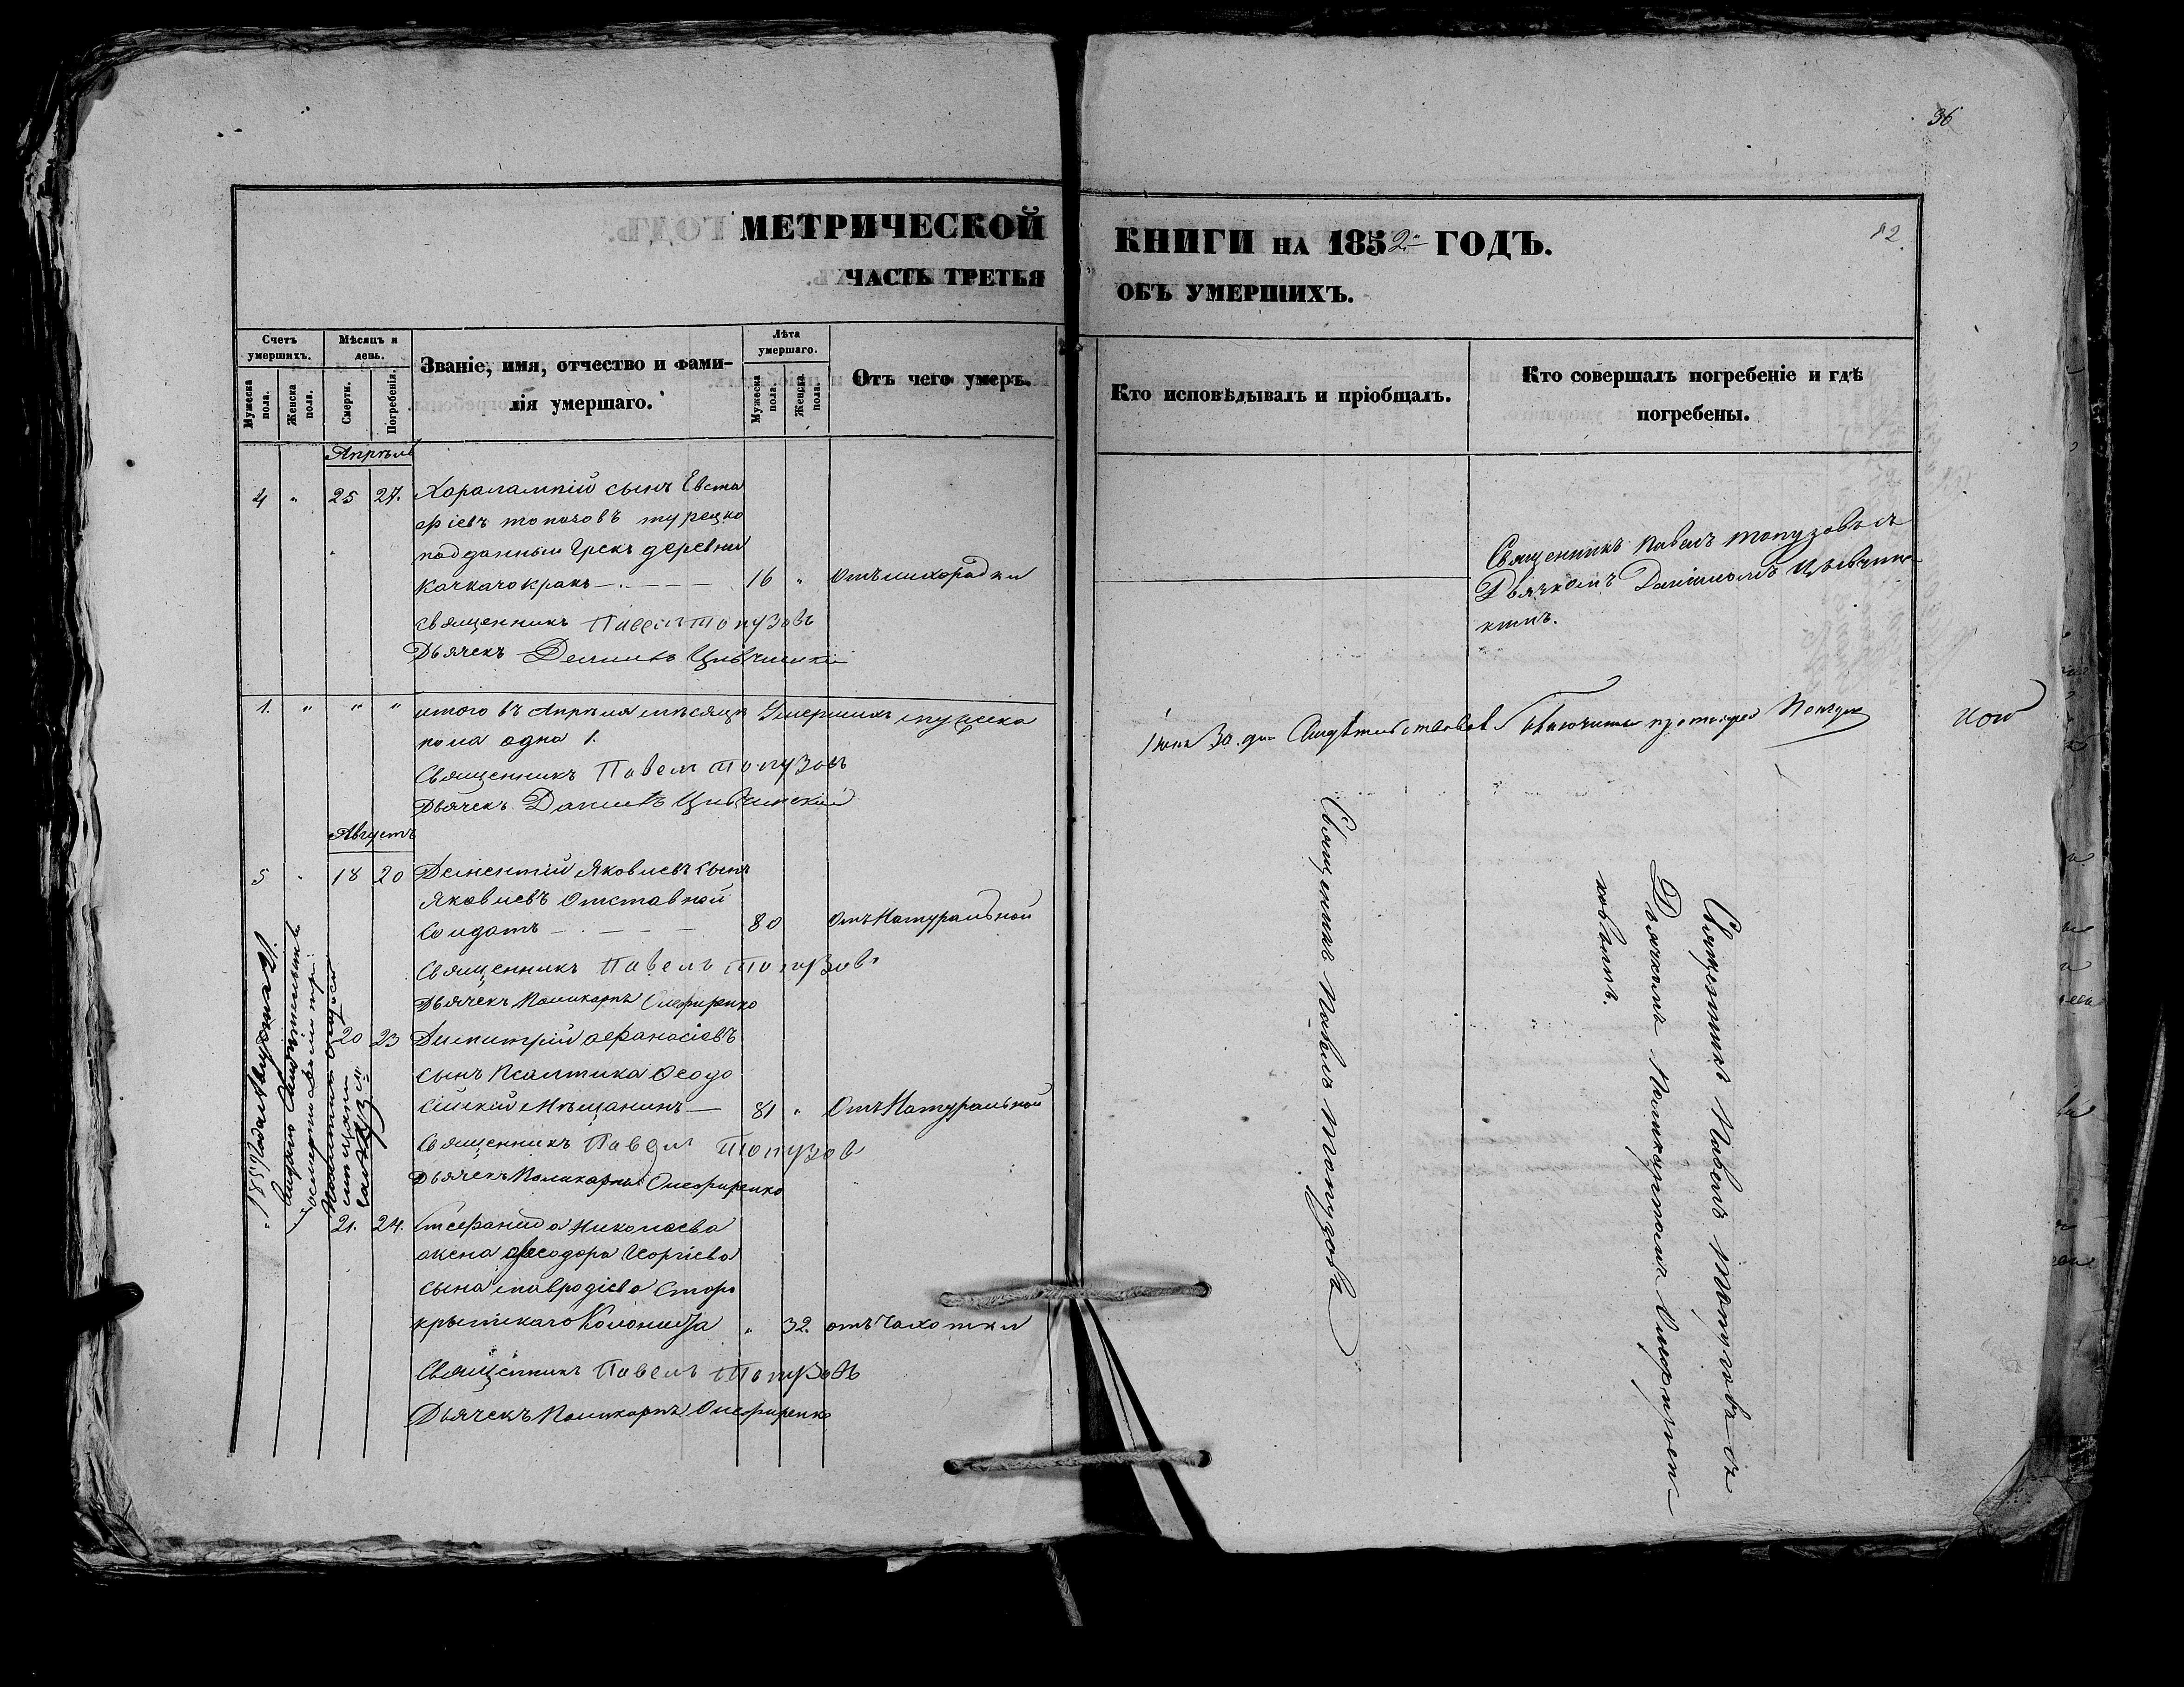 36
МЕТРИЧЕСКОЙ
ЧАСТЬ ТРЕТЬЯ
КНИГИ НА 1852й ГОДЪ.
82.
ОБЪ УМЕРШИХЪ.
Счетъ умершихъ.
Мужеска пола.
Женска пола.
Мѣсяцъ и день.
Смерти.
Погребенія.
Званіе, имя, отчество и фами-
лія умершаго.
Лѣта умершаго.
Мужеска пола.
Женска пола.
Отъ чего умеръ.
Кто исповѣдывалъ и пріобщалъ.
Кто совершалъ погребеніе и гдѣ
погребены.
Апрѣль
4 " 25 27. Харалампій сынъ Евста
фіевъ топаловъ турецко
подданный Грекъ деревни
16 " Отъ лихорадки
Священникъ Павелъ Топузовъ
Дьячекъ
Священникъ Павелъ Топузовъ съ
Дьячкомъ Даніиломъ
1. " " " итого въ Апрѣля мѣсяцѣ Умершихъ мужеска
пола одна 1.
Священникъ Павелъ Топузовъ
Дьячекъ Даніилъ
Іюня 30. дня Свидѣтельствовалъ Благочинный протоіерей
Августъ
5 " 18 20 Дементій Яковлевъ сынъ
Яковлевъ Отставной
Солдатъ 80 Отъ Натуральной
Священникъ Павелъ Топузовъ
Дьячекъ Поликарпъ Олефиренко
20 23 Димитрій Афанасіевъ
сынъ Псалтика Феодо
сійскій Мѣщанинъ 81 " Отъ Натуральной
Священникъ Павелъ Топузовъ
Дьячекъ Поликарпъ Олефиренко
21. 24. Стефанида Николаева
жена Феодора Георгіева
сына Мавродіева Старо
крымскаго " 32. отъ Чахотки
Священникъ Павелъ Топузовъ
Дьячекъ Поликарпъ Олефиренко
Августа 21.
Священникъ Павелъ Топузовъ
Священникъ Павелъ Топузовъ съ
Дьячкомъ Поликарпомъ Олефирен-
ковымъ.